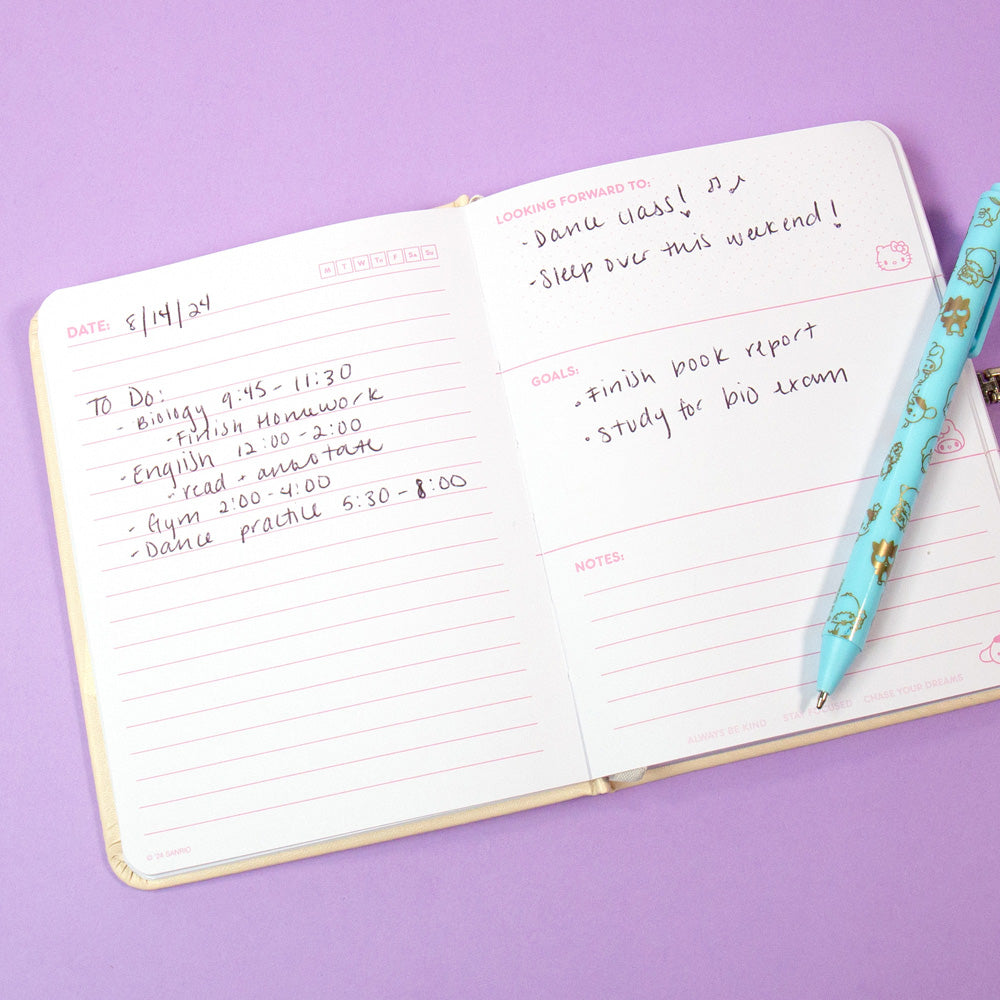 M T W Th F Sa Su
DATE: 8/14/24
TO DO:
- Biology 9:45 - 11:30
- Finish Homework
- English 12:00 - 2:00
- read + annotate
- Gym 2:00 - 4:00
- Dance practice 5:30 - 8:00
© '24 SANRIO
LOOKING FORWARD TO:
- Dance class! ♫ ♪
- Sleep over this weekend!
GOALS:
• Finish book report
• study for bio exam
NOTES:
ALWAYS BE KIND STAY FOCUSED CHASE YOUR DREAMS